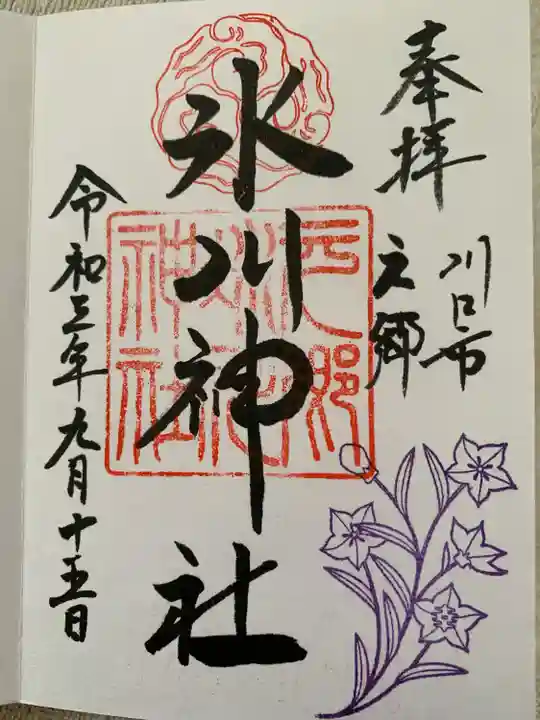 奉拝
川口市
元郷
氷川神社
令和三年九月十五日
元郷
氷川
神社